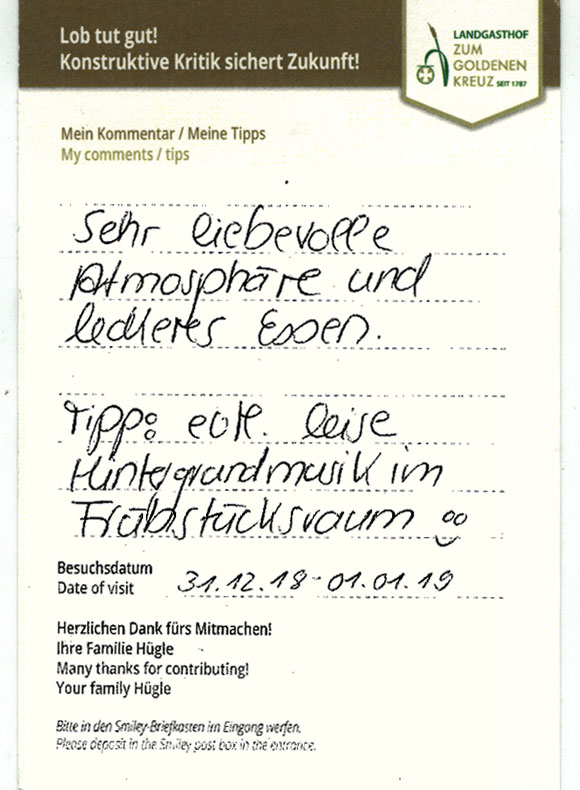 Lob tut gut!
Konstruktive Kritik sichert Zukunft!
LANDGASTHOF
ZUM
GOLDENEN
KREUZ SEIT 1787
Mein Kommentar / Meine Tipps
My comments / tips
Sehr liebevolle
Atmosphäre und
leckeres Essen.
Tipp: evtl. leise
Hintergrundmusik im
Frühstücksraum
Besuchsdatum
Date of visit 31.12.18 - 01.01.19
Herzlichen Dank fürs Mitmachen!
Ihre Familie Hügle
Many thanks for contributing!
Your family Hügle
Bitte in den Smiley-Briefkasten im Eingang werfen.
Please deposit in the Smiley post box in the entrance.